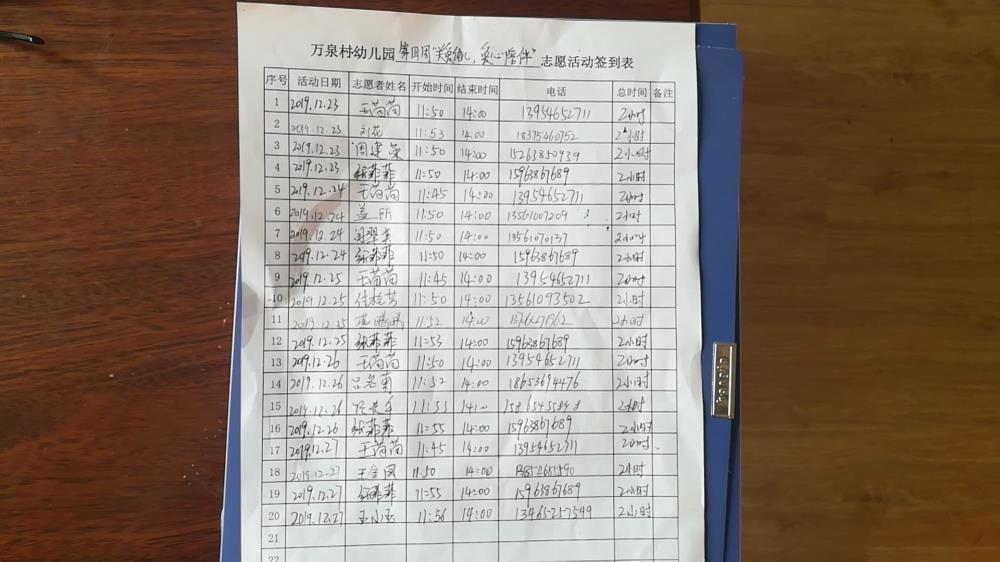 万泉村幼儿园第四周"关爱幼儿，爱心陪伴"志愿活动签到表
序号 活动日期 志愿者姓名 开始时间 结束时间 电话 总时间 备注
1 2019.12.23 王茵茵 11:50 14:00 13954652711 2小时
2 2019.12.23 刘花 11:53 14:00 18375460752 2小时
3 2019.12.23 周建荣 11:50 14:00 15263850939 2小时
4 2019.12.23 张菲菲 11:50 14:00 15963867689 2小时
5 2019.12.24 王茵茵 11:45 14:00 13954652711 2小时
6 2019.12.24 11:50 14:00 13561007209 2小时
7 2019.12.24 11:50 14:00 13561070137 2小时
8 2019.12.24 张菲菲 11:50 14:00 15963867689 2小时
9 2019.12.25 王茵茵 11:45 14:00 13954652711 2小时
10 2019.12.25 付桂芳 11:50 14:00 13561093502 2小时
11 2019.12.25 11:52 14:00 2小时
12 2019.12.25 张菲菲 11:53 14:00 15963867689 2小时
13 2019.12.26 王茵茵 11:50 14:00 13954652711 2小时
14 2019.12.26 吕冬菊 11:52 14:00 18653694476 2小时
15 2019.12.26 11:53 14:00 2小时
16 2019.12.26 张菲菲 11:55 14:00 15963867689 2小时
17 2019.12.27 王茵茵 11:45 14:00 13954652711 2小时
18 2019.12.27 王金凤 11:50 14:00 2小时
19 2019.12.27 张菲菲 11:55 14:00 15963867689 2小时
20 2019.12.27 王小玉 11:56 14:00 13465257599 2小时
21
22